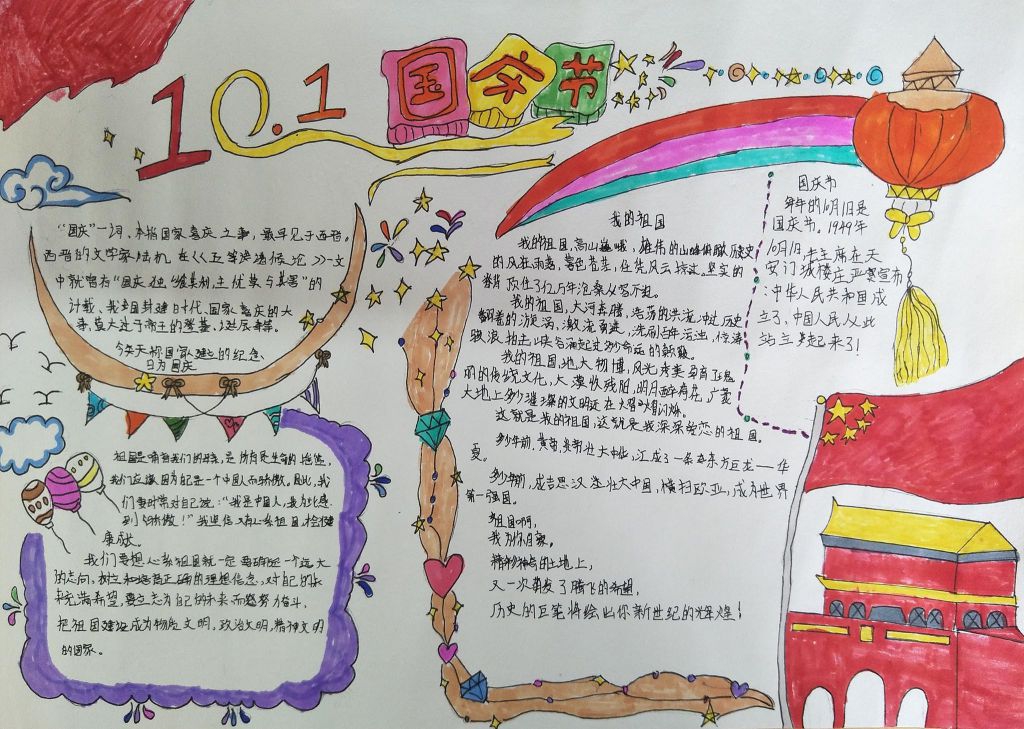 10.1
国庆节
"国庆"一词,本指国家喜庆之事,最早见于西晋。
西晋的文学家陆机在《五等诸侯论》一文
中就曾有"国庆独飨其利,主忧莫与其害"的
记载、我国封建时代、国家喜庆的大
事,莫大过于帝王的
今天称国家建立的纪念
日为国庆
祖国是哺育我们的母亲,是
我们应该因为自己是一个中国人而骄傲。因此,我
们要时常对自己说:"我是中国人,我为此感
到骄傲!"我坚信
康成长。
我们要想心系祖国就一定要确定一个远大
的志向,树立和培育正确的理想信念,对自己的未
来充满希望,要立志为自己的未来而努力奋斗,
把祖国建设成为物质文明,政治文明,精神文明
的国家。
我的祖国
我的祖国,高山巍峨,雄伟的山峰俯瞰历史
的风狂雨落,暮色苍茫,任凭风云掠过。坚实的
脊背顶住了亿万年沧桑从容不迫。
我的祖国,大河奔腾,浩荡的洪流冲过历史
翻卷的漩涡,激流勇进,洗刷百年污浊,惊涛
骇浪拍击峡谷涌起过多少命运的颠簸。
我的祖国,地大物博,风光秀美孕育了瑰
丽的传统文化,大漠收残阳,明月醉荷花,广袤
大地上多少璀璨的文明还在熠熠闪烁。
这就是我的祖国,这就是我深深爱恋的祖国。
多少年前,黄帝,炎帝壮大中华,汇成了一条东方巨龙——华
夏。
多少年前,成吉思汗壮大中国,横扫欧亚,成为世界
第一强国。
祖国啊,
我为你自豪。
精彩神奇的土地上,
又一次萌发了腾飞的希望,
历史的巨笔将绘出你新世纪的辉煌!
国庆节
每年的10月1日是
国庆节。1949年
10月1日,毛主席在天
安门城楼庄严宣布
:中华人民共和国成
立了,中国人民从此
站立起来了!